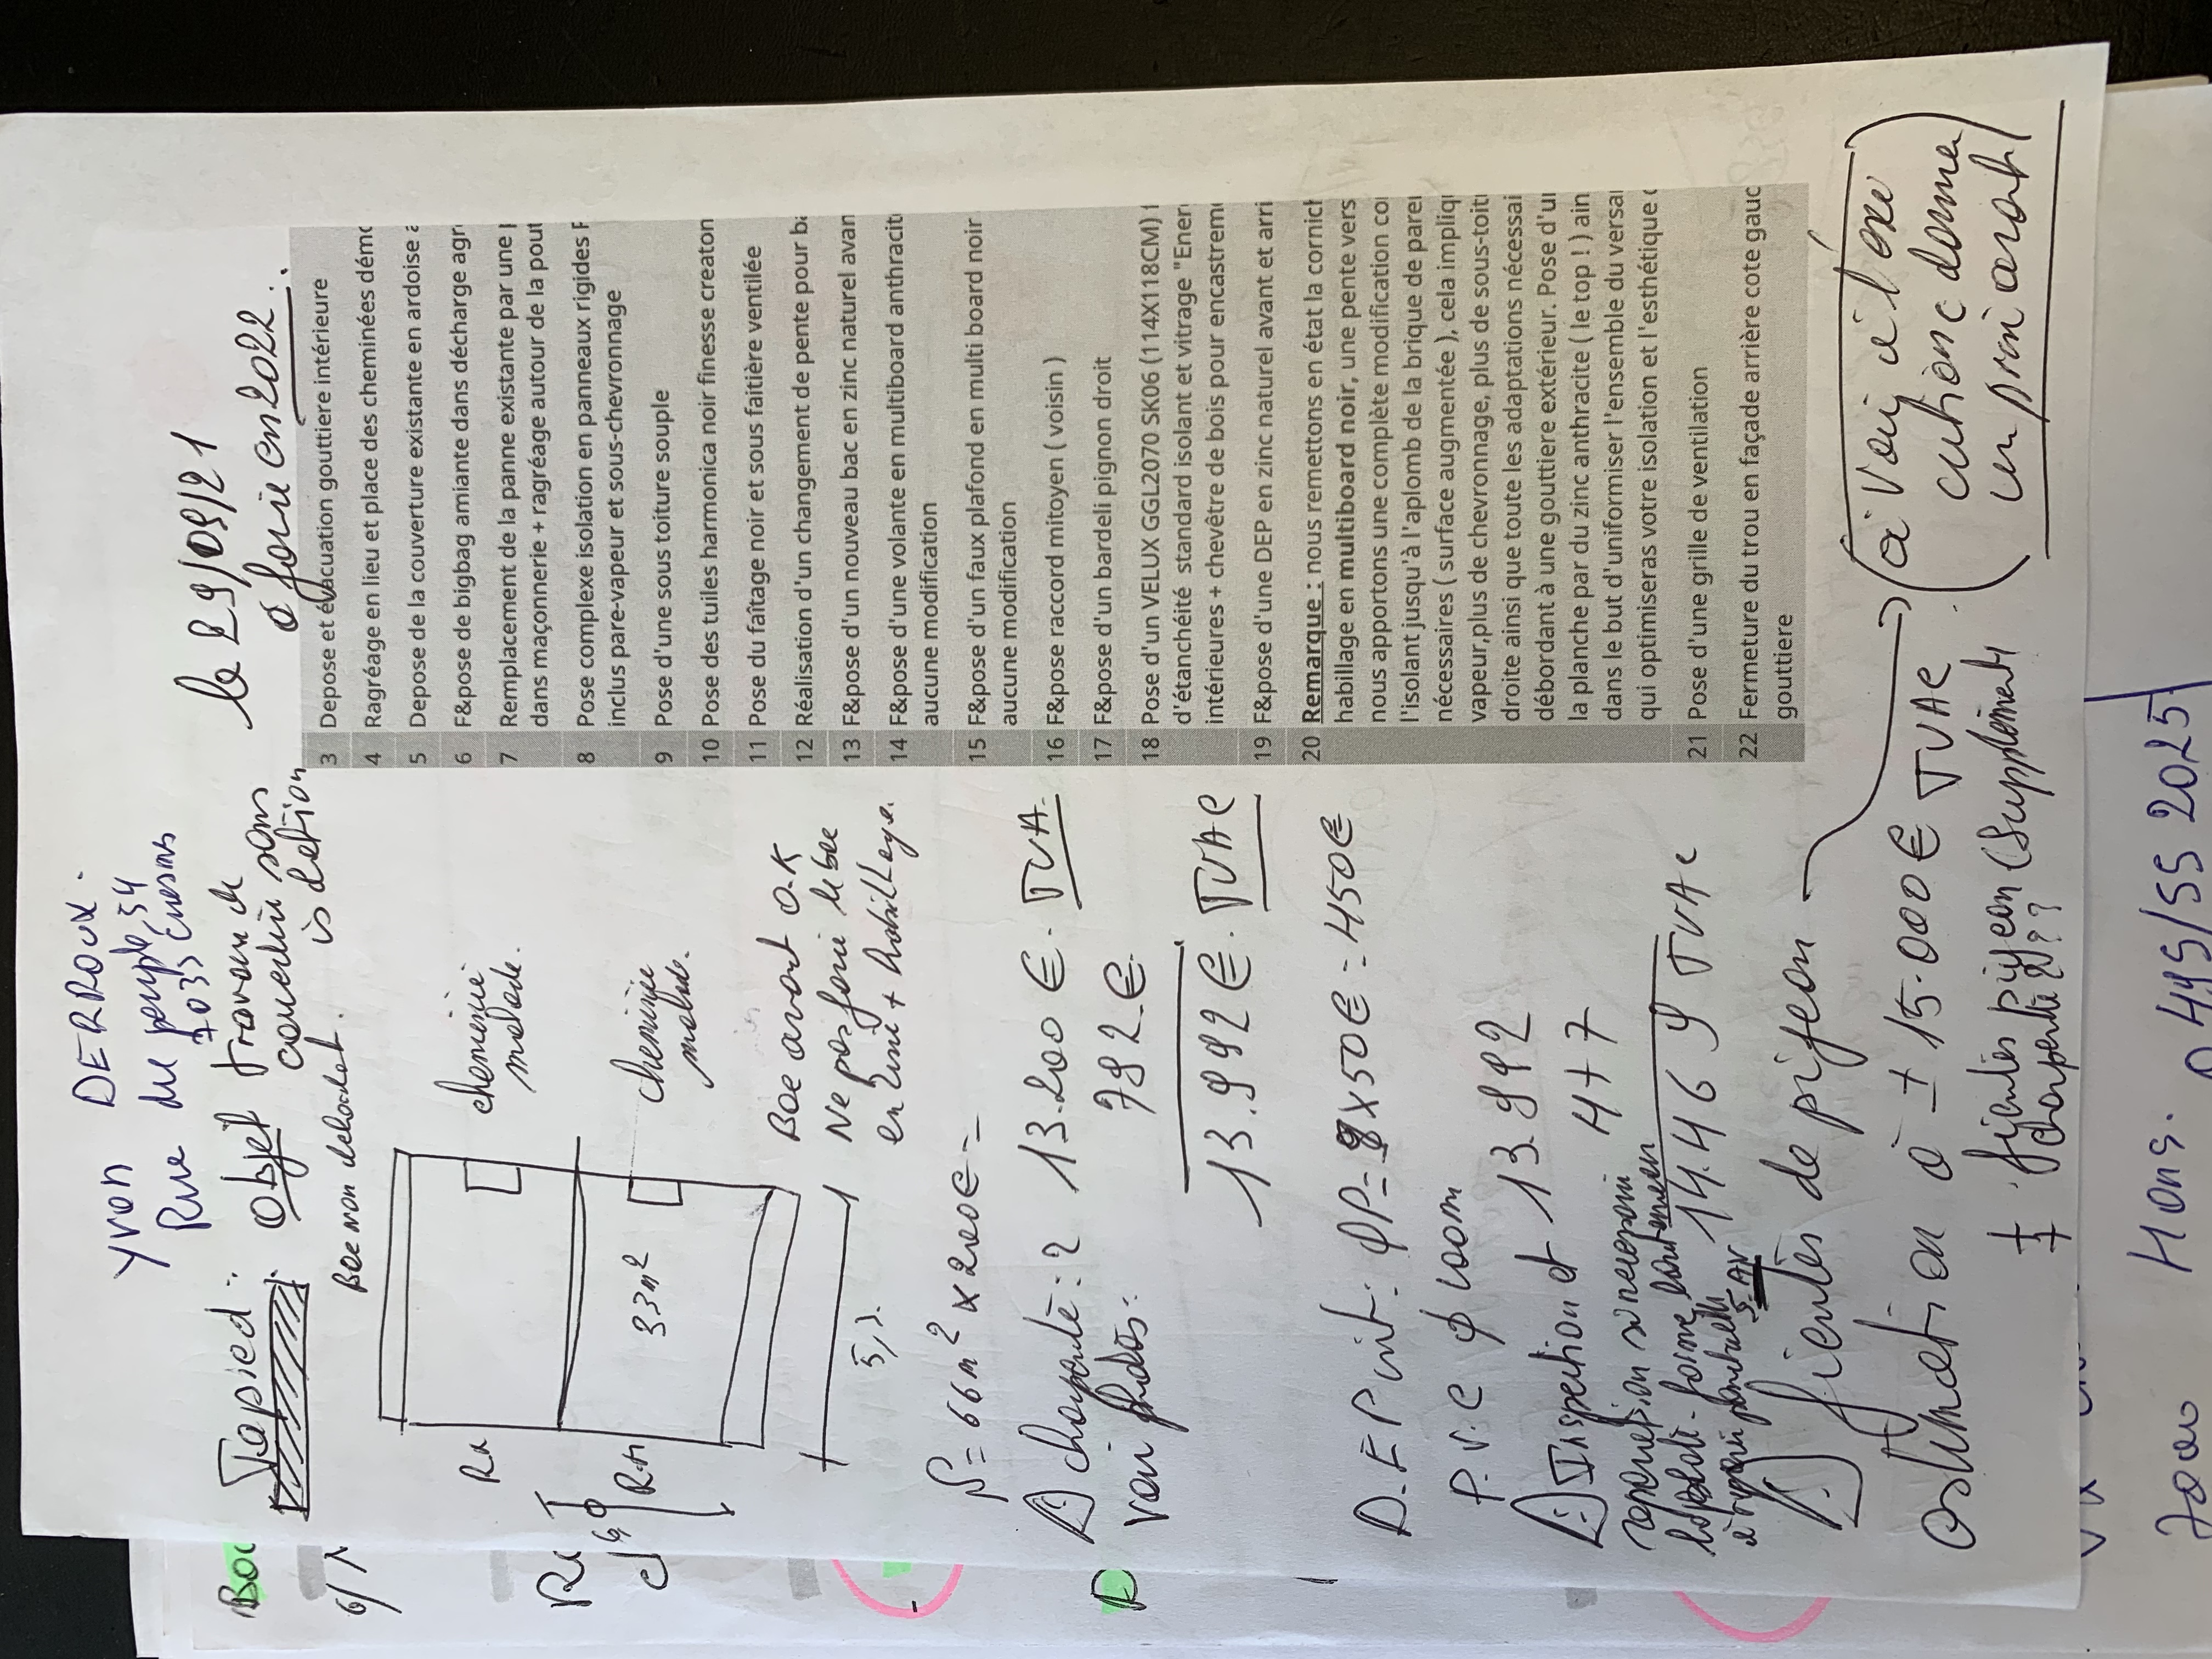 Yvon DERROUX.
Rue du peuple, 54
7033 Cuesmes
le 29/09/21
à faire en 2022.
Tapied:
Objet travaux de
couverture sans
isolation
Bac non débordant.
cheminée
malade.
cheminée
malade.
Rd
33m²
Bac avant O.K
Ne pas faire
en zinc + habillage.
S = 66m² x 200€ =
charpente: ? 13.200 €. TVA.
voir photos: 792.€.
13.992€. TVAC
D.E.P unit: 9P= 9x50€ = 450€
P.V.C ϕ 100mm
Inspection et 13.992
réparation si nécessaire 477
14.469 TVAC
5. AV
fientes de pigeon
(à voir à l'exé
cution donner
un prix avant)
estimation à ± 15.000€ TVAC
+ fientes pigeon (suppléments
+ charpente ???
3 Depose et évacuation gouttiere intérieure
4 Ragréage en lieu et place des cheminées démo
5 Depose de la couverture existante en ardoise a
6 F&pose de bigbag amiante dans décharge agr
7 Remplacement de la panne existante par une
dans maçonnerie + ragréage autour de la pout
8 Pose complexe isolation en panneaux rigides
inclus pare-vapeur et sous-chevronnage
9 Pose d'une sous toiture souple
10 Pose des tuiles harmonica noir finesse creaton
11 Pose du faîtage noir et sous faitière ventilée
12 Réalisation d'un changement de pente pour ba
13 F&pose d'un nouveau bac en zinc naturel avan
14 F&pose d'une volante en multiboard anthracit
aucune modification
15 F&pose d'un faux plafond en multi board noir
aucune modification
16 F&pose raccord mitoyen ( voisin )
17 F&pose d'un bardeli pignon droit
18 Pose d'un VELUX GGL2070 SK06 (114X118CM)
d'étanchéité standard isolant et vitrage "Ener
intérieures + chevêtre de bois pour encastrem
19 F&pose d'une DEP en zinc naturel avant et arri
20 Remarque : nous remettons en état la cornich
habillage en multiboard noir, une pente vers
nous apportons une complète modification co
l'isolant jusqu'à l'aplomb de la brique de pare
nécessaires ( surface augmentée ), cela impliq
vapeur,plus de chevronnage, plus de sous-toit
droite ainsi que toute les adaptations nécessai
débordant à une gouttiere extérieur. Pose d'u
la planche par du zinc anthracite ( le top ! ) ain
dans le but d'uniformiser l'ensemble du versa
qui optimiseras votre isolation et l'esthétique
21 Pose d'une grille de ventilation
22 Fermeture du trou en façade arrière cote gauc
gouttiere
Mons. 0495/55 2025
7000